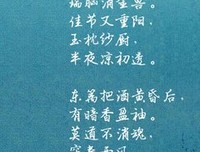 瑞脑消金兽。
佳节又重阳，
玉枕纱厨，
半夜凉初透。
东篱把酒黄昏后，
有暗香盈袖。
莫道不消魂，